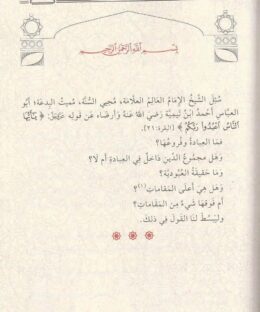 بِسْمِ اللَّهِ الرَّحْمَنِ الرَّحِيمِ
سُئِلَ الشَّيْخُ الإِمَامُ العَالِمُ العَلَّامَةُ، مُحْيِي السُّنَّةِ، مُمِيتُ البِدْعَةِ؛ أَبُو
العَبَّاسِ أَحْمَدُ ابْنُ تَيْمِيَّةَ رَضِيَ اللهُ عَنْهُ وَأَرْضَاهُ عَن قَولِهِ ﷿: ﴿يَٰٓأَيُّهَا
ٱلنَّاسُ ٱعۡبُدُواْ رَبَّكُمُ﴾ [البقرة: ٢١].
فَمَا العِبَادَةُ وَفُرُوعُهَا؟
وَهَل مَجمُوعُ الدِّينِ دَاخِلٌ فِي العِبَادَةِ أَم لَا؟
وَمَا حَقِيقَةُ العُبُودِيَّةِ؟
وَهَل هِيَ أَعلَى المَقَامَاتِ(١)؟
أَم فَوقَهَا شَيءٌ مِنَ المَقَامَاتِ؟
وليَبْسُطْ لَنَا القَولَ فِي ذَلِكَ.